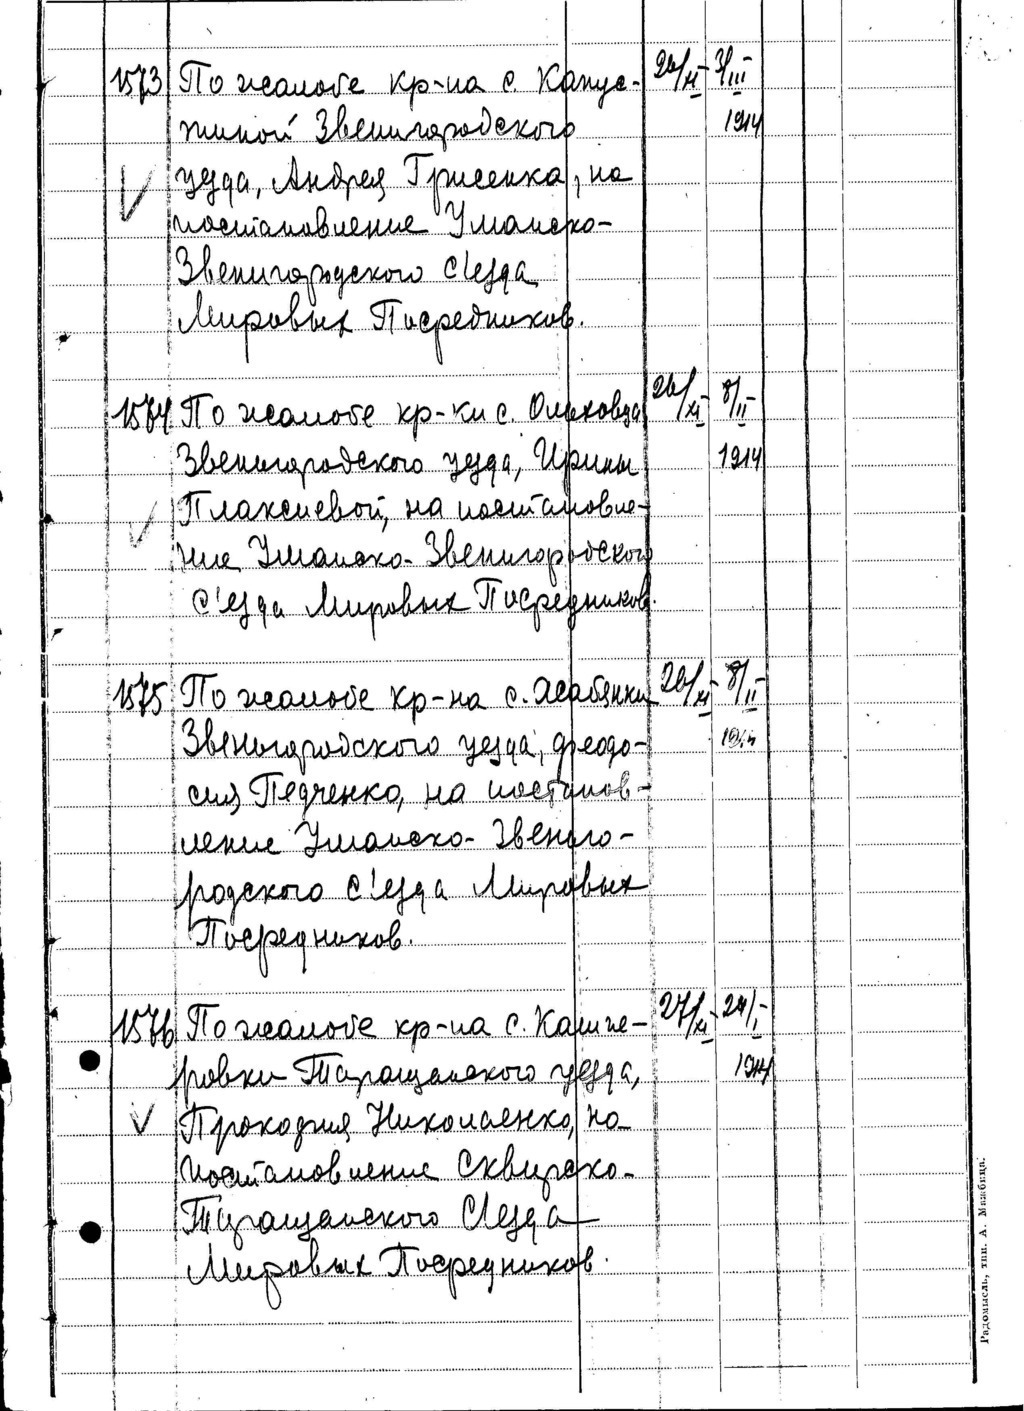 1573 По жалобе кр-на с. Капус- 26/XI- 3/III-
тиной Звенигородского 1914
уезда, Андрея Грисенка, на
постановление Уманско-
Звенигородского с'езда
Мировых Посредников.
1574 По жалобе кр-ки с. Ольховца 26/XI- 8/II-
Звенигородского уезда, Ирины 1914
Плаксиевой, на постановле-
ние Уманско-Звенигородского
с'езда Мировых Посредников.
1575 По жалобе кр-на с. Жабянки 26/XI- 8/II-
Звенигородского уезда, Феодо- 1914
сия Педченко, на постанов-
ление Уманско-Звениго-
родского с'езда Мировых
Посредников.
1576 По жалобе кр-на с. Кашпе- 27/XI- 24/I-
ровки Таращанского уезда, 1914
Прокофия Николаенко, на
постановление Сквирско-
Таращанского С'езда
Мировых Посредников.
Радомысль, тип. А. Мажбица.